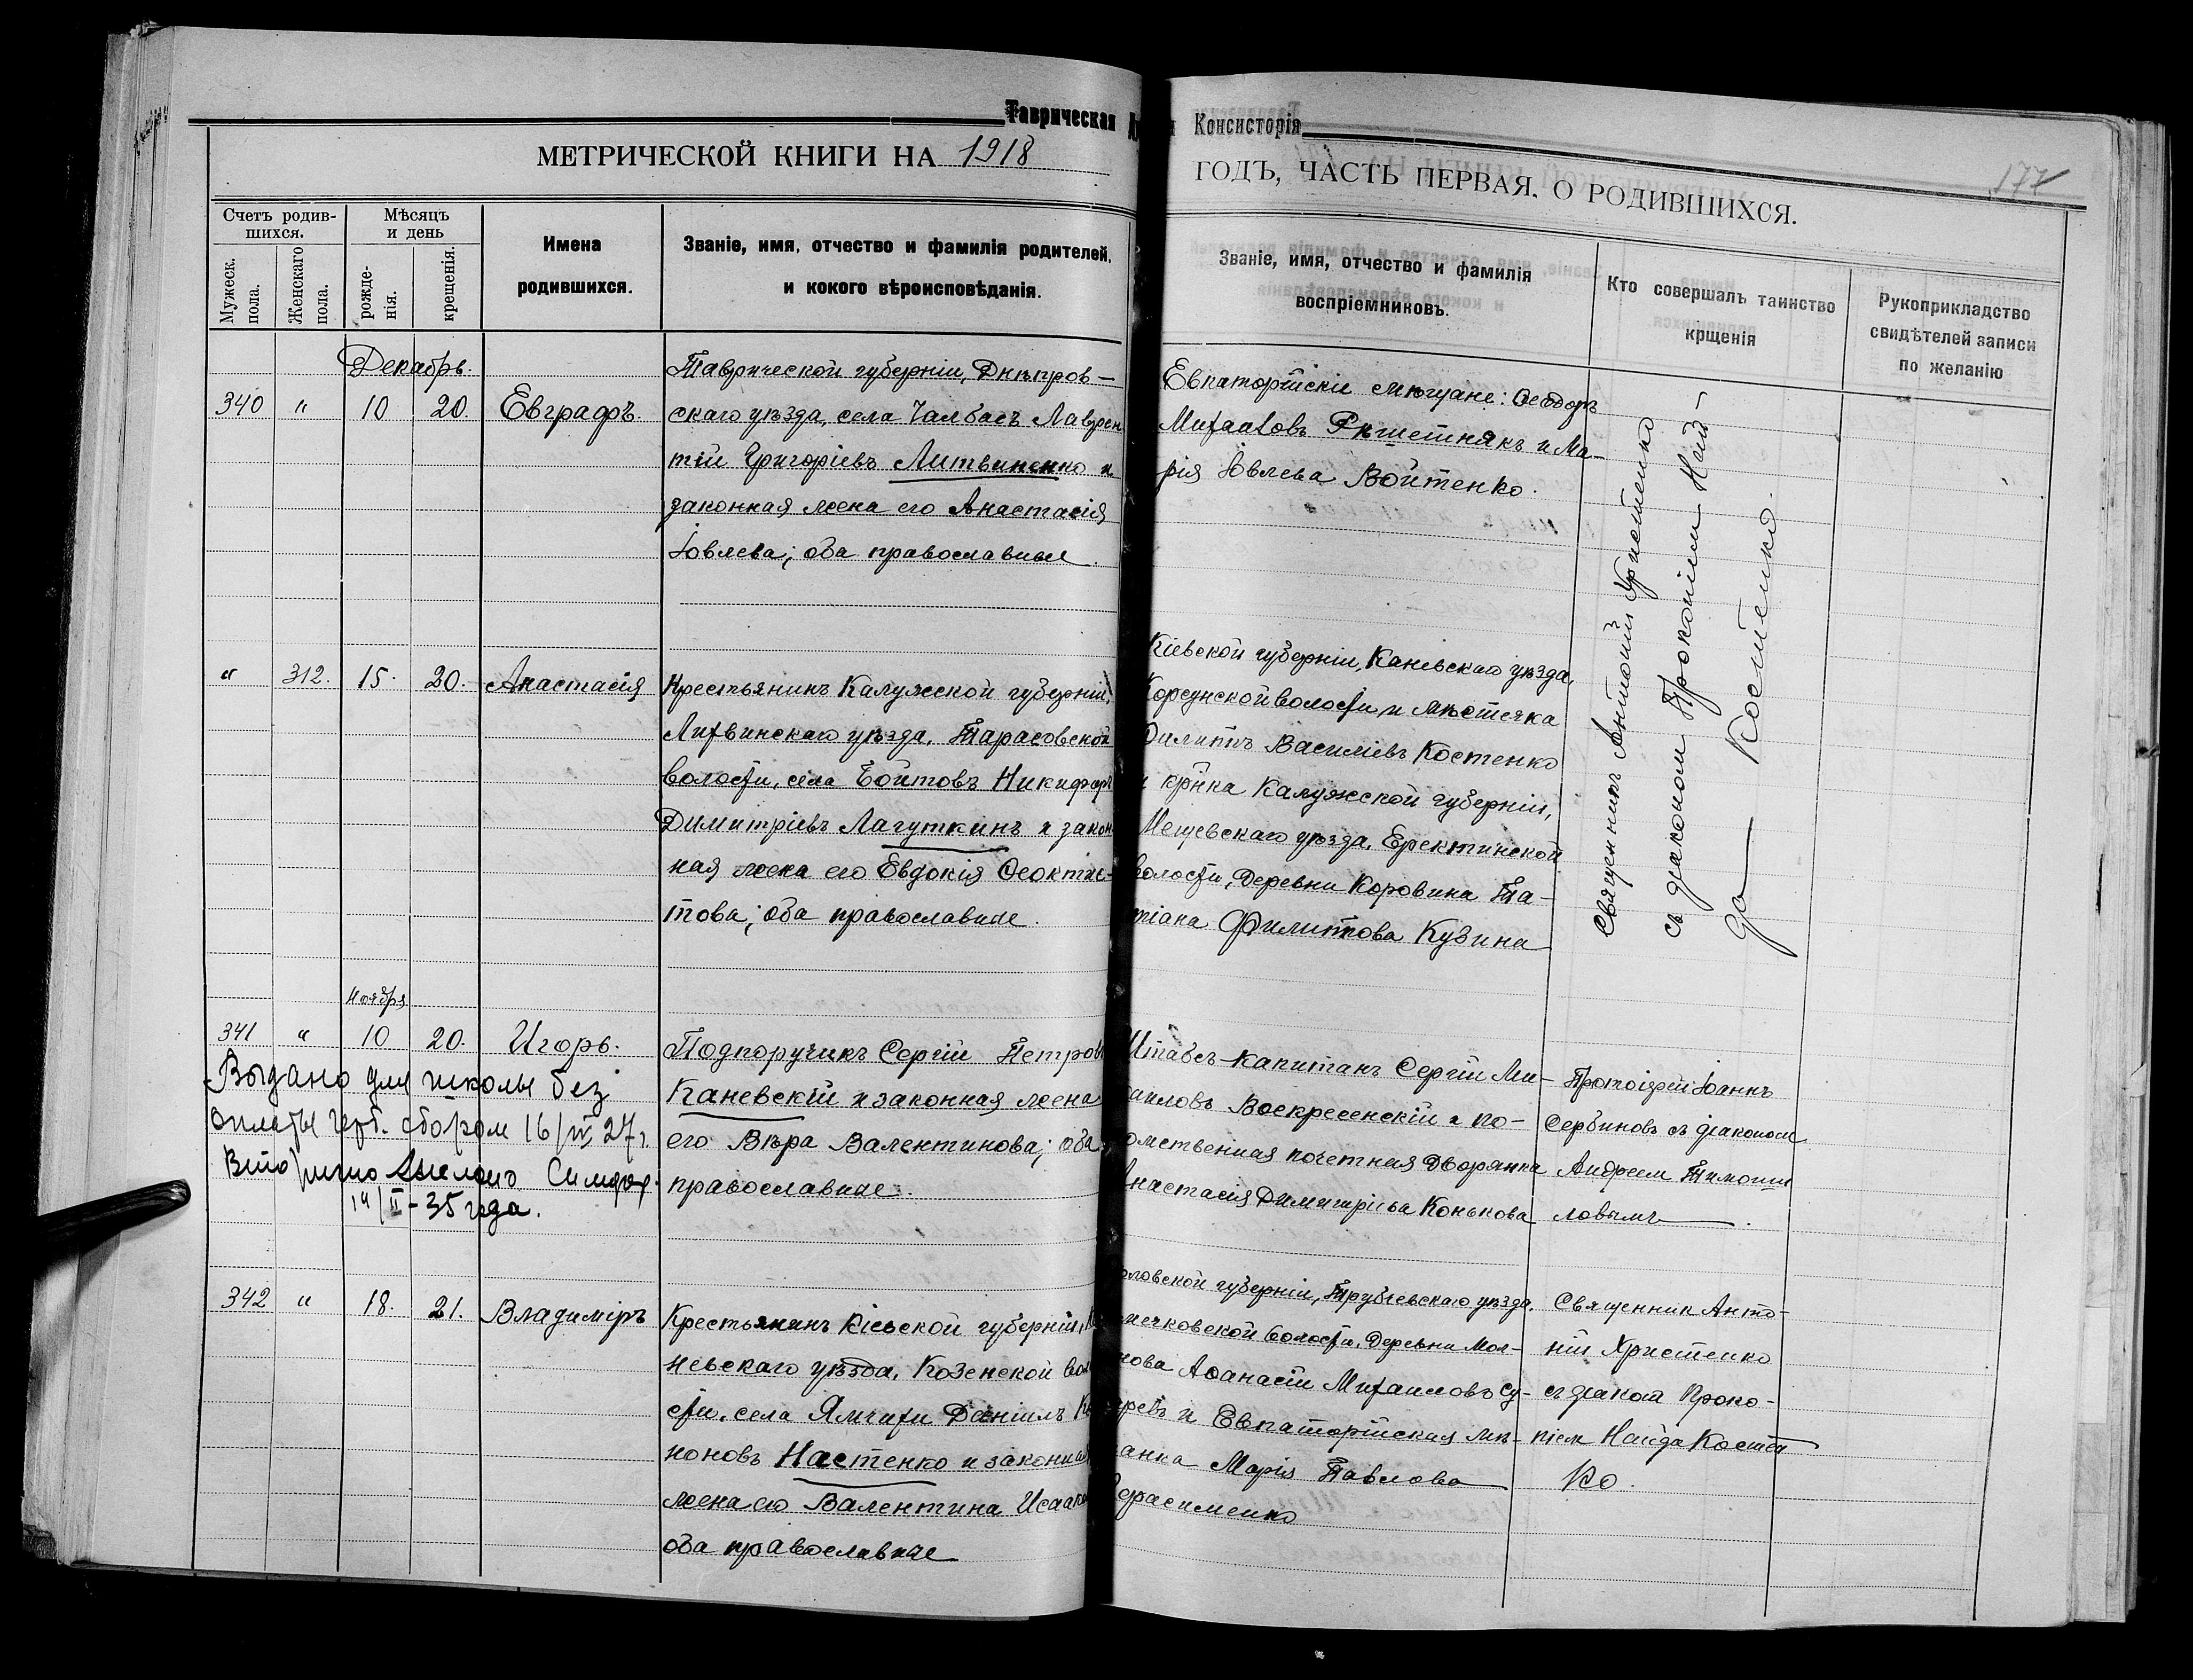 Таврическая
Консисторія
МЕТРИЧЕСКОЙ КНИГИ НА 1918
ГОДЪ, ЧАСТЬ ПЕРВАЯ, О РОДИВШИХСЯ.
177
Счетъ родив-
шихся.
Мужеск.
пола.
Женскаго
пола.
Мѣсяцъ
и день
рожде-
нія.
крещенія.
Имена
родившихся.
Званіе, имя, отчество и фамилія родителей,
и кокого вѣроисповѣданія.
Званіе, имя, отчество и фамилія
воспріемниковъ.
Кто совершалъ таинство
крщенія
Рукоприкладство
свидѣтелей записи
по желанію
Декабрь.
340 " 10 20. Евграфъ.
Таврической губерніи, Днѣпров-
скаго уѣзда, села Чалбасъ Лаврен
тій Григоріевъ Литвиненко и
законная жена его Анастасія
Іовлева; оба православные.
Евпаторійскіе мѣщане: Ѳеодоръ
Михаиловъ Рѣшетнякъ и Ма-
рія Іовлева Войтенко.
Священникъ Антоній Христенко
съ діакономъ Прокопіем Ней-
да Костенко.
" 312. 15. 20. Анастасія
Крестьянинъ Калужской губерніи,
Лихвинскаго уѣзда, Тарасовской
волости, села Войтовъ Никифоръ
Димитріевъ Лагуткинъ и закон
ная жена его Евдокія Ѳеоктис-
това; оба православные.
Кіевской губерніи, Каневскаго уѣзда,
Корсунской волости и мѣстечка
Филиппъ Василіевъ Костенко
и кр-нка Калужской губерніи,
Мещевскаго уѣзда, Еректинской
волости, Деревни Коровина Та-
тіана Филиппова Кузина
Ноября
341 " 10 20. Игорь.
Подпоручикъ Сергій Петровъ
Каневскій и законная жена
его Вѣра Валентинова; оба
православные.
Штабсъ-Капитанъ Сергій Ми-
аиловъ Воскресенскій и по-
омственная почетная Дворянка
Анастасія Димитріева Конькова
Протоіерей Іоаннъ
Сербиновъ съ діакономъ
Андреем Тимоши
ловымъ.
Выдано для школы без
оплаты герб. сбором 16/IV 27 г.
Вторично Симфер.
14/II-35 года.
342 " 18. 21. Владиміръ
Крестьянинъ Кіевской губерніи,
невскаго уѣзда, Козенской вол
сти, села Даніилъ
ноновъ Настенко и законная
жена его Валентина Исааки
оба православные
рловской губерніи, Трубчевскаго уѣзда,
мечковской волости, Деревни Мол-
нова Аѳанасій Михаиловъ Су-
аревъ и Евпаторійская мѣ-
анка Марія Павлова
Герасименко
Священник Анто-
ній Христенко
съ діакон Проко-
піем Найда Костен
ко.